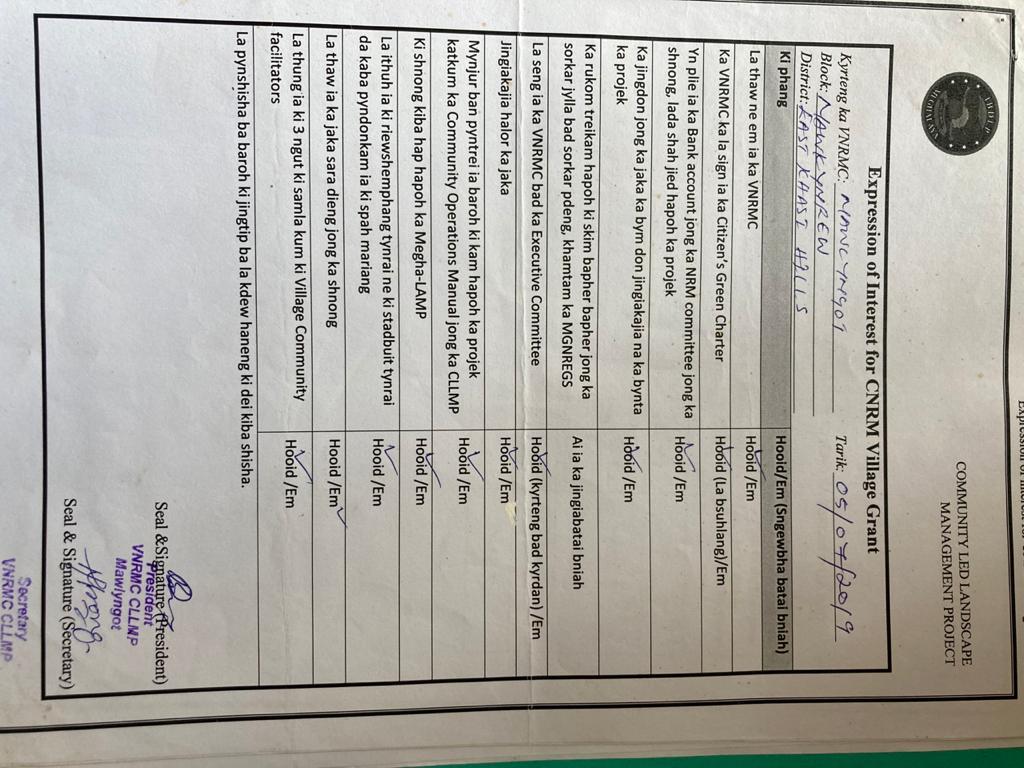 COMMUNITY LED LANDSCAPE
MANAGEMENT PROJECT
Expression of Interest for CNRM Village Grant
Kyrteng ka VNRMC: MAWLYNGOT Tarik: 05/07/2019
Block: MAWKYNREW
District: EAST KHASI HILLS
Ki phang Hooid/Em (Sngewbha batai bniah)
La thaw ne em ia ka VNRMC Hooid /Em
Ka VNRMC ka la sign ia ka Citizen's Green Charter Hooid (La bsuhlang)/Em
Yn plie ia ka Bank account jong ka NRM committee jong ka
shnong, lada shah jied hapoh ka projek Hooid /Em
Ka jingdon jong ka jaka ka bym don jingiakajia na ka bynta
ka projek Hooid /Em
Ka rukom treikam hapoh ki skim bapher bapher jong ka
sorkar jylla bad sorkar pdeng, khamtam ka MGNREGS Ai ia ka jingiabatai bniah
La seng ia ka VNRMC bad ka Executive Committee Hooid (kyrteng bad kyrdan) /Em
Jingiakajia halor ka jaka Hooid /Em
Mynjur ban pyntrei ia baroh ki kam hapoh ka projek
katkum ka Community Operations Manual jong ka CLLMP Hooid /Em
Ki shnong kiba hap hapoh ka Megha-LAMP Hooid /Em
La ithuh ia ki riewshemphang tynrai ne ki stadbuit tynrai
da kaba pyndonkam ia ki spah mariang Hooid /Em
La thaw ia ka jaka sara dieng jong ka shnong Hooid /Em
La thung ia ki 3 ngut ki samla kum ki Village Community
facilitators Hooid /Em
La pynshisha ba baroh ki jingtip ba la kdew haneng ki dei kiba shisha.
Seal &Signature (President)
President
VNRMC CLLMP
Mawlyngot
Seal & Signature (Secretary)
Secretary
VNRMC CLLMP